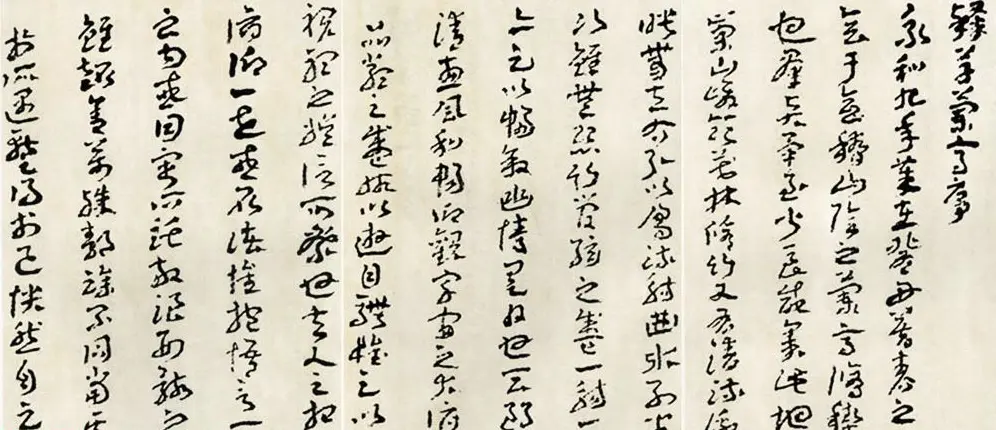 草蘭亭序
永和九年歲在癸丑暮春之
會于會稽山陰之蘭亭脩稧
也群賢畢至少長咸集此地
崇山峻領茂林脩竹又有清流激
暎帶左右引以為流觴曲水列坐
次雖無絲竹管弦之盛一觴一
亦足以暢敘幽情是日也天朗
清惠風和暢仰觀宇宙之大俯
品類之盛所以遊目騁懷足以
視聽之娛信可樂也夫人之相
俯仰一世或取諸懷抱悟言一
之內或因寄所託放浪形骸之
雖趣舍萬殊靜躁不同當其
於所遇暫得於己快然自足